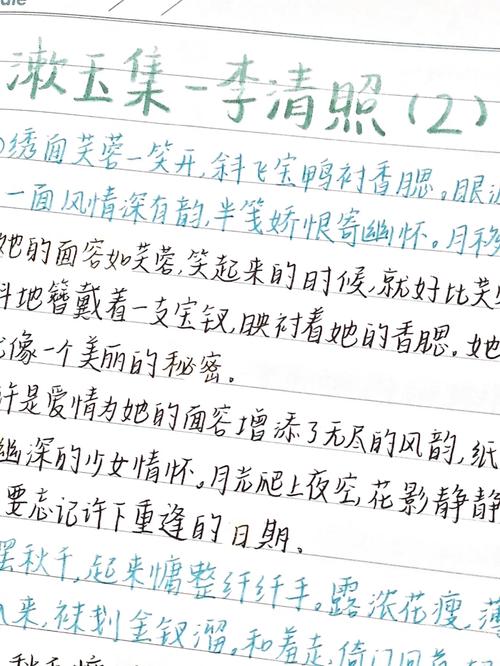 漱玉集－李清照(2)
绣面芙蓉一笑开,斜飞宝鸭衬香腮。眼波
一面风情深有韵,半笺娇恨寄幽怀。月移
她的面容如芙蓉,笑起来的时候,就好比芙
斜地簪戴着一支宝钗,映衬着她的香腮。她
像一个美丽的秘密。
许是爱情为她的面容增添了无尽的风韵,纸
幽深的少女情怀。月亮爬上夜空,花影静静
要忘记许下重逢的日期。
罢秋千,起来慵整纤纤手。露浓花瘦,薄
来,袜刬金钗溜。和羞走,倚门回首